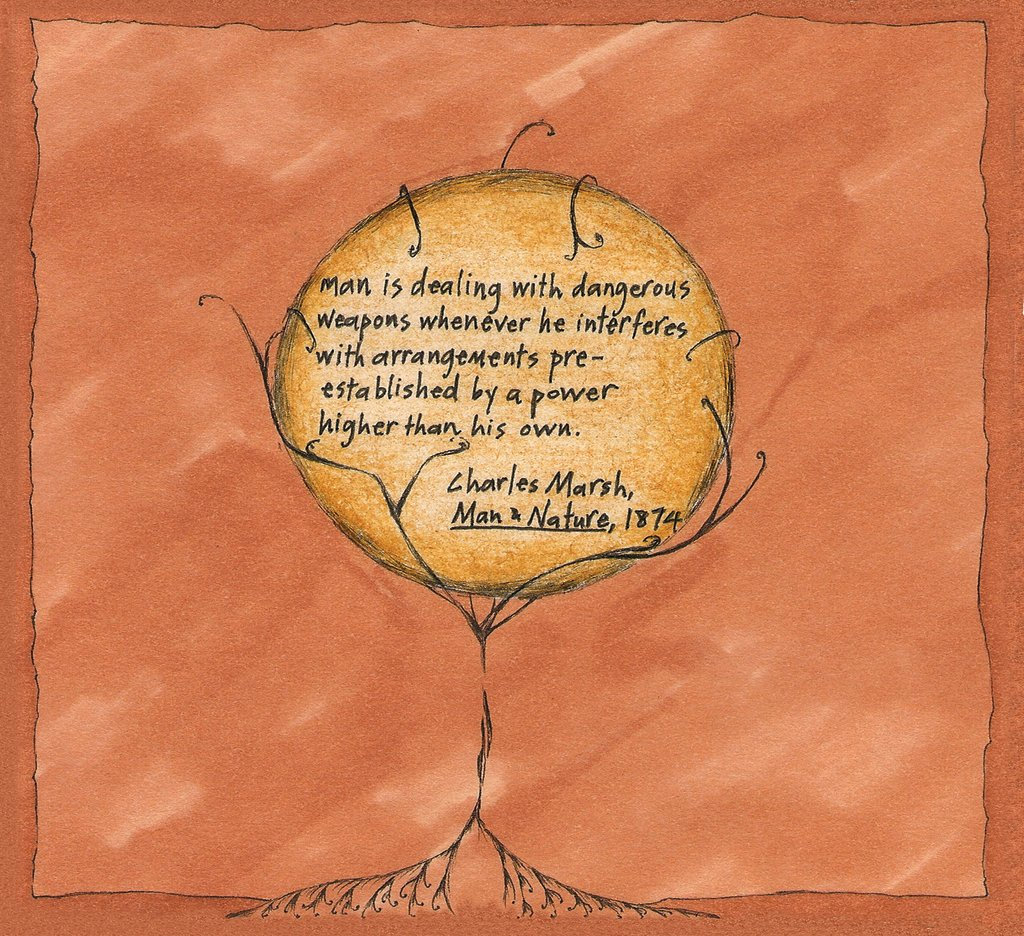 man is dealing with dangerous
weapons whenever he interferes
with arrangements pre-
established by a power
higher than his own.
Charles Marsh,
Man & Nature, 1874